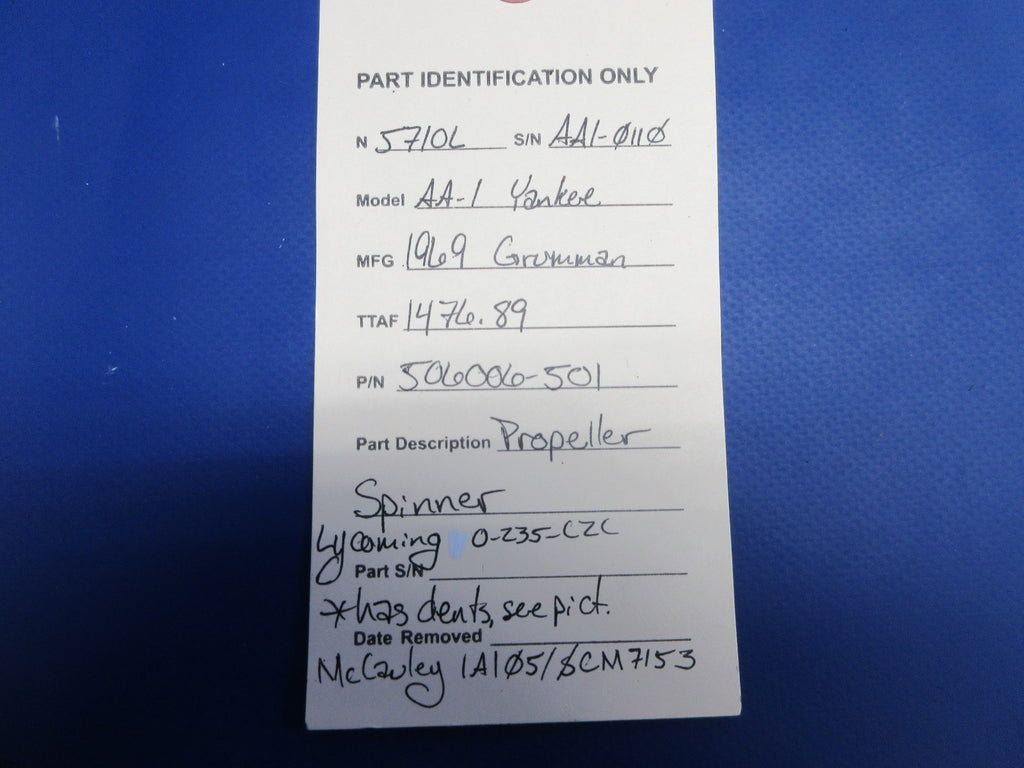 PART IDENTIFICATION ONLY
N 5710L S/N AA1-Ø11Ø
Model AA-1 Yankee
MFG 1969 Grumman
TTAF 1476.89
P/N 506006-501
Part Description Propeller
Spinner
Lycoming O-235-C2C
Part S/N
*has dents, see pict.
Date Removed
McCauley 1A1Ø5/SCM7153